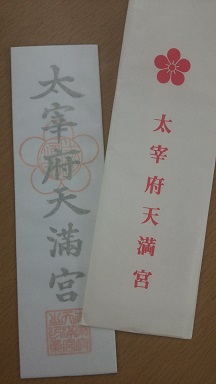 太宰府天満宮
太宰府天満宮